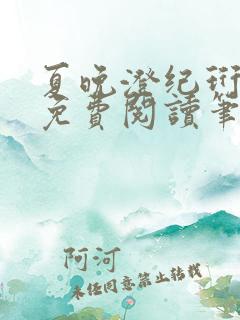 夏晚澄纪珩
免費閱讀筆
阿河
未经同意禁止转载